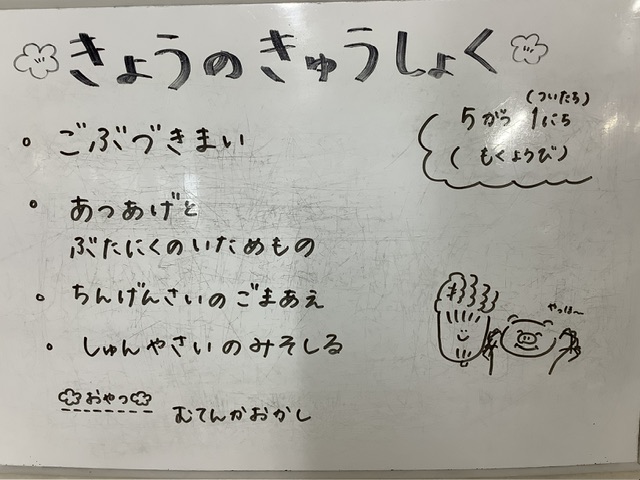 きょうのきゅうしょく
(ついたち)
5がつ 1にち
(もくようび)
・ごぶづきまい
・あつあげと
ぶたにくのいためもの
・ちんげんさいのごまあえ
・しゅんやさいのみそしる
やっほ〜
おやつ
むてんかおかし